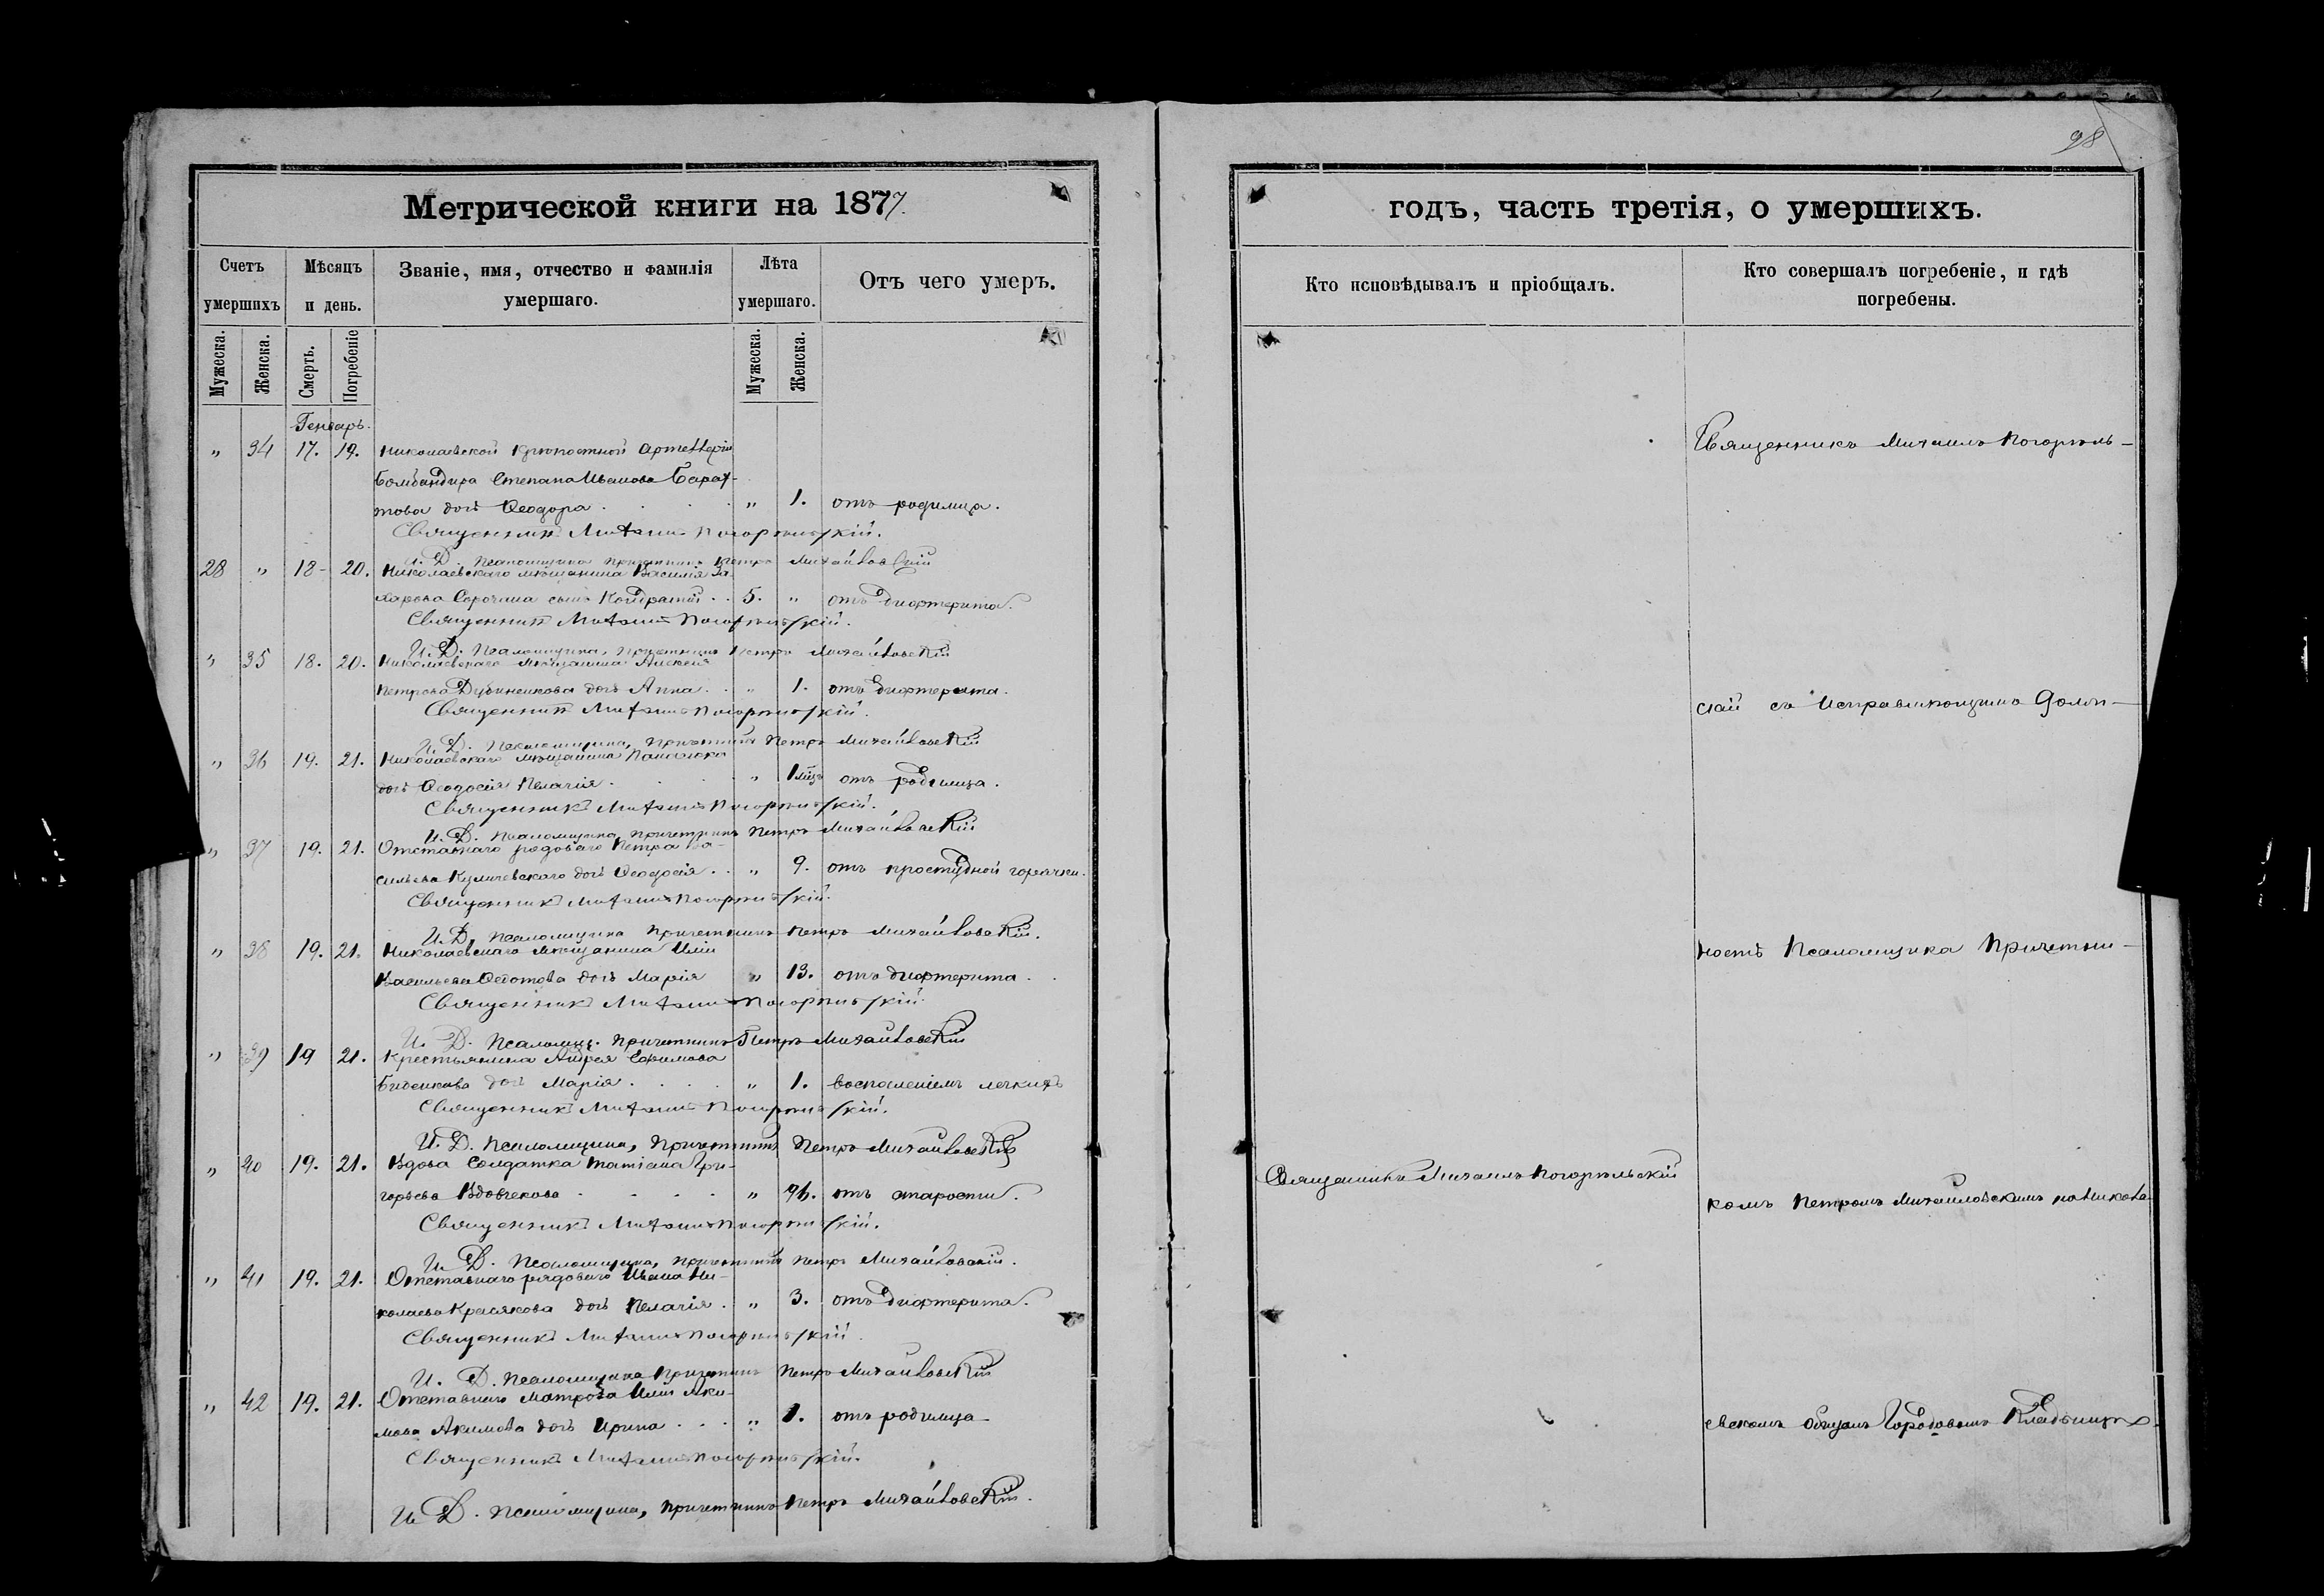 98
Метрической книги на 1877.
годъ, часть третія, о умершихъ.
Счетъ умершихъ
Мѣсяцъ и день.
Званіе, имя, отчество и фамилія умершаго.
Лѣта умершаго.
Отъ чего умеръ.
Кто исповѣдывалъ и пріобщалъ.
Кто совершалъ погребеніе, и гдѣ погребены.
Мужеска. Женска. Смерть. Погребеніе Мужеска. Женска.
Генварь.
" 34 17. 19. Николаевской крѣпостной артеллеріи
Бомбандира Степана Иванова
това дочь Ѳеодора . . . " 1. отъ родимца.
Священникъ Михаилъ Погорѣльскій.
И. Д. Псаломщика Причетникъ Петръ Михайловскій
28 " 18 - 20. Николаевскаго мѣщанина Василія За-
харова сынъ Кондратій . . 5. " отъ дифтерита.
Священникъ Михаилъ Погорѣльскій.
И. Д. Псаломщика, Причетникъ Петръ Михайловскій
" 35 18. 20. Николаевскаго мѣщанина Алексея
Петрова дочь Анна . . " 1. отъ дифтерита.
Священникъ Михаилъ Погорѣльскій.
И. Д. Псаломщика, Причетникъ Петръ Михайловскій
" 36 19. 21. Николаевскаго мѣщанина
дочь Ѳеодосія Пелагія . . " 1 мѣц. отъ родимца.
Священникъ Михаилъ Погорѣльскій.
И. Д. Псаломщика, Причетникъ Петръ Михайловскій
" 37 19. 21. Отставнаго рядоваго Петра Ва-
сильева дочь Ѳеодосія . . " 9. отъ простудной горячки.
Священникъ Михаилъ Погорѣльскій.
И. Д. Псаломщика Причетникъ Петръ Михайловскій.
" 38 19. 21. Николаевскаго мѣщанина Иліи
Васильева Ѳедотова дочь Марія " 13. отъ дифтерита.
Священникъ Михаилъ Погорѣльскій.
И. Д. Псаломщ. Причетникъ Петръ Михайловскій
" 39 19 21. Крестьянина Андрея Ефимова
дочь Марія . . . . " 1. воспаленіемъ легкихъ
Священникъ Михаилъ Погорѣльскій.
И. Д. Псаломщика, Причетникъ Петръ Михайловскій
" 40 19. 21. Вдова Солдатка Татіана Гри-
горьева . . . . " 96. отъ старости.
Священникъ Михаилъ Погорѣльскій.
И. Д. Псаломщика, Причетникъ Петръ Михайловскій.
" 41 19. 21. Отставнаго рядоваго Ивана Ни-
колаева дочь Пелагія . " 3. отъ дифтерита.
Священникъ Михаилъ Погорѣльскій.
И. Д. Псаломщика Причетникъ Петръ Михайловскій
" 42 19. 21. Отставнаго Матроза Иліи Аки-
мова Акимова дочь Ирина . . . " 1. отъ родимца
Священникъ Михаилъ Погорѣльскій.
И. Д. Псаломщика, Причетникъ Петръ Михайловскій.
Священникъ Михаилъ Погорѣльскій
Священникъ Михаилъ Погорѣль-
скій съ Исправляющимъ долж-
ность Псаломщика Причетни-
комъ Петромъ Михайловскимъ на Никола-
евскомъ общемъ Городовомъ Кладбищѣ.